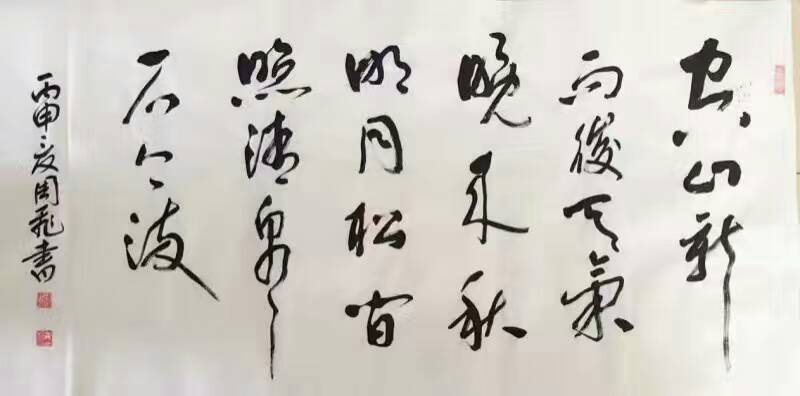 空山新
雨後天氣
晚来秋
明月松間
照清泉
石上流
丙申夏周飛書